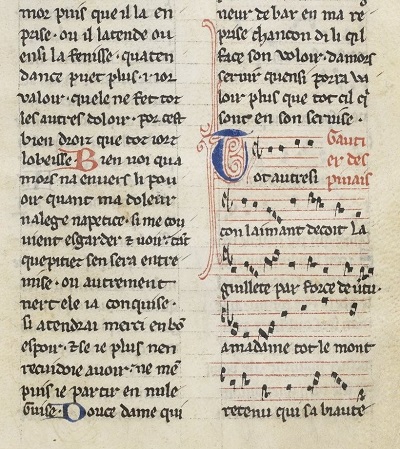 mor puis que il la en
prise · ou il latende ou
ensi la fenisse · quaten
dance puet plus · i · ior
valoir · quele ne fet tot
les autres doloir · por cest
bien droiz que tot iorz
lobeisse Bien uoi qua
mors na enuers li pou
oir quant ma doleur
nalege na petice · si me cou
uient esgarder ⁊ uoir · tāt
que pitiez sen sera entre
mise · ou autrement
niert ele ia conquise ·
si atendrai merci en bō
espoir · ⁊ se ie plus nen
recuidoie auoir · ne mē
puis ie partir en nule
Guise · Douce dame qui
neur de bar en ma re
prise chancon di li qil
face son voloir · damors
seruir quensi porra va
loir plus que tot cil q̄
sont en son seruise ·
Gauti
er des
pinais
Tot autresi
con laimant decoit la
guillete par force de uertu ·
a ma dame tot le mont
retenu qui sa biaute